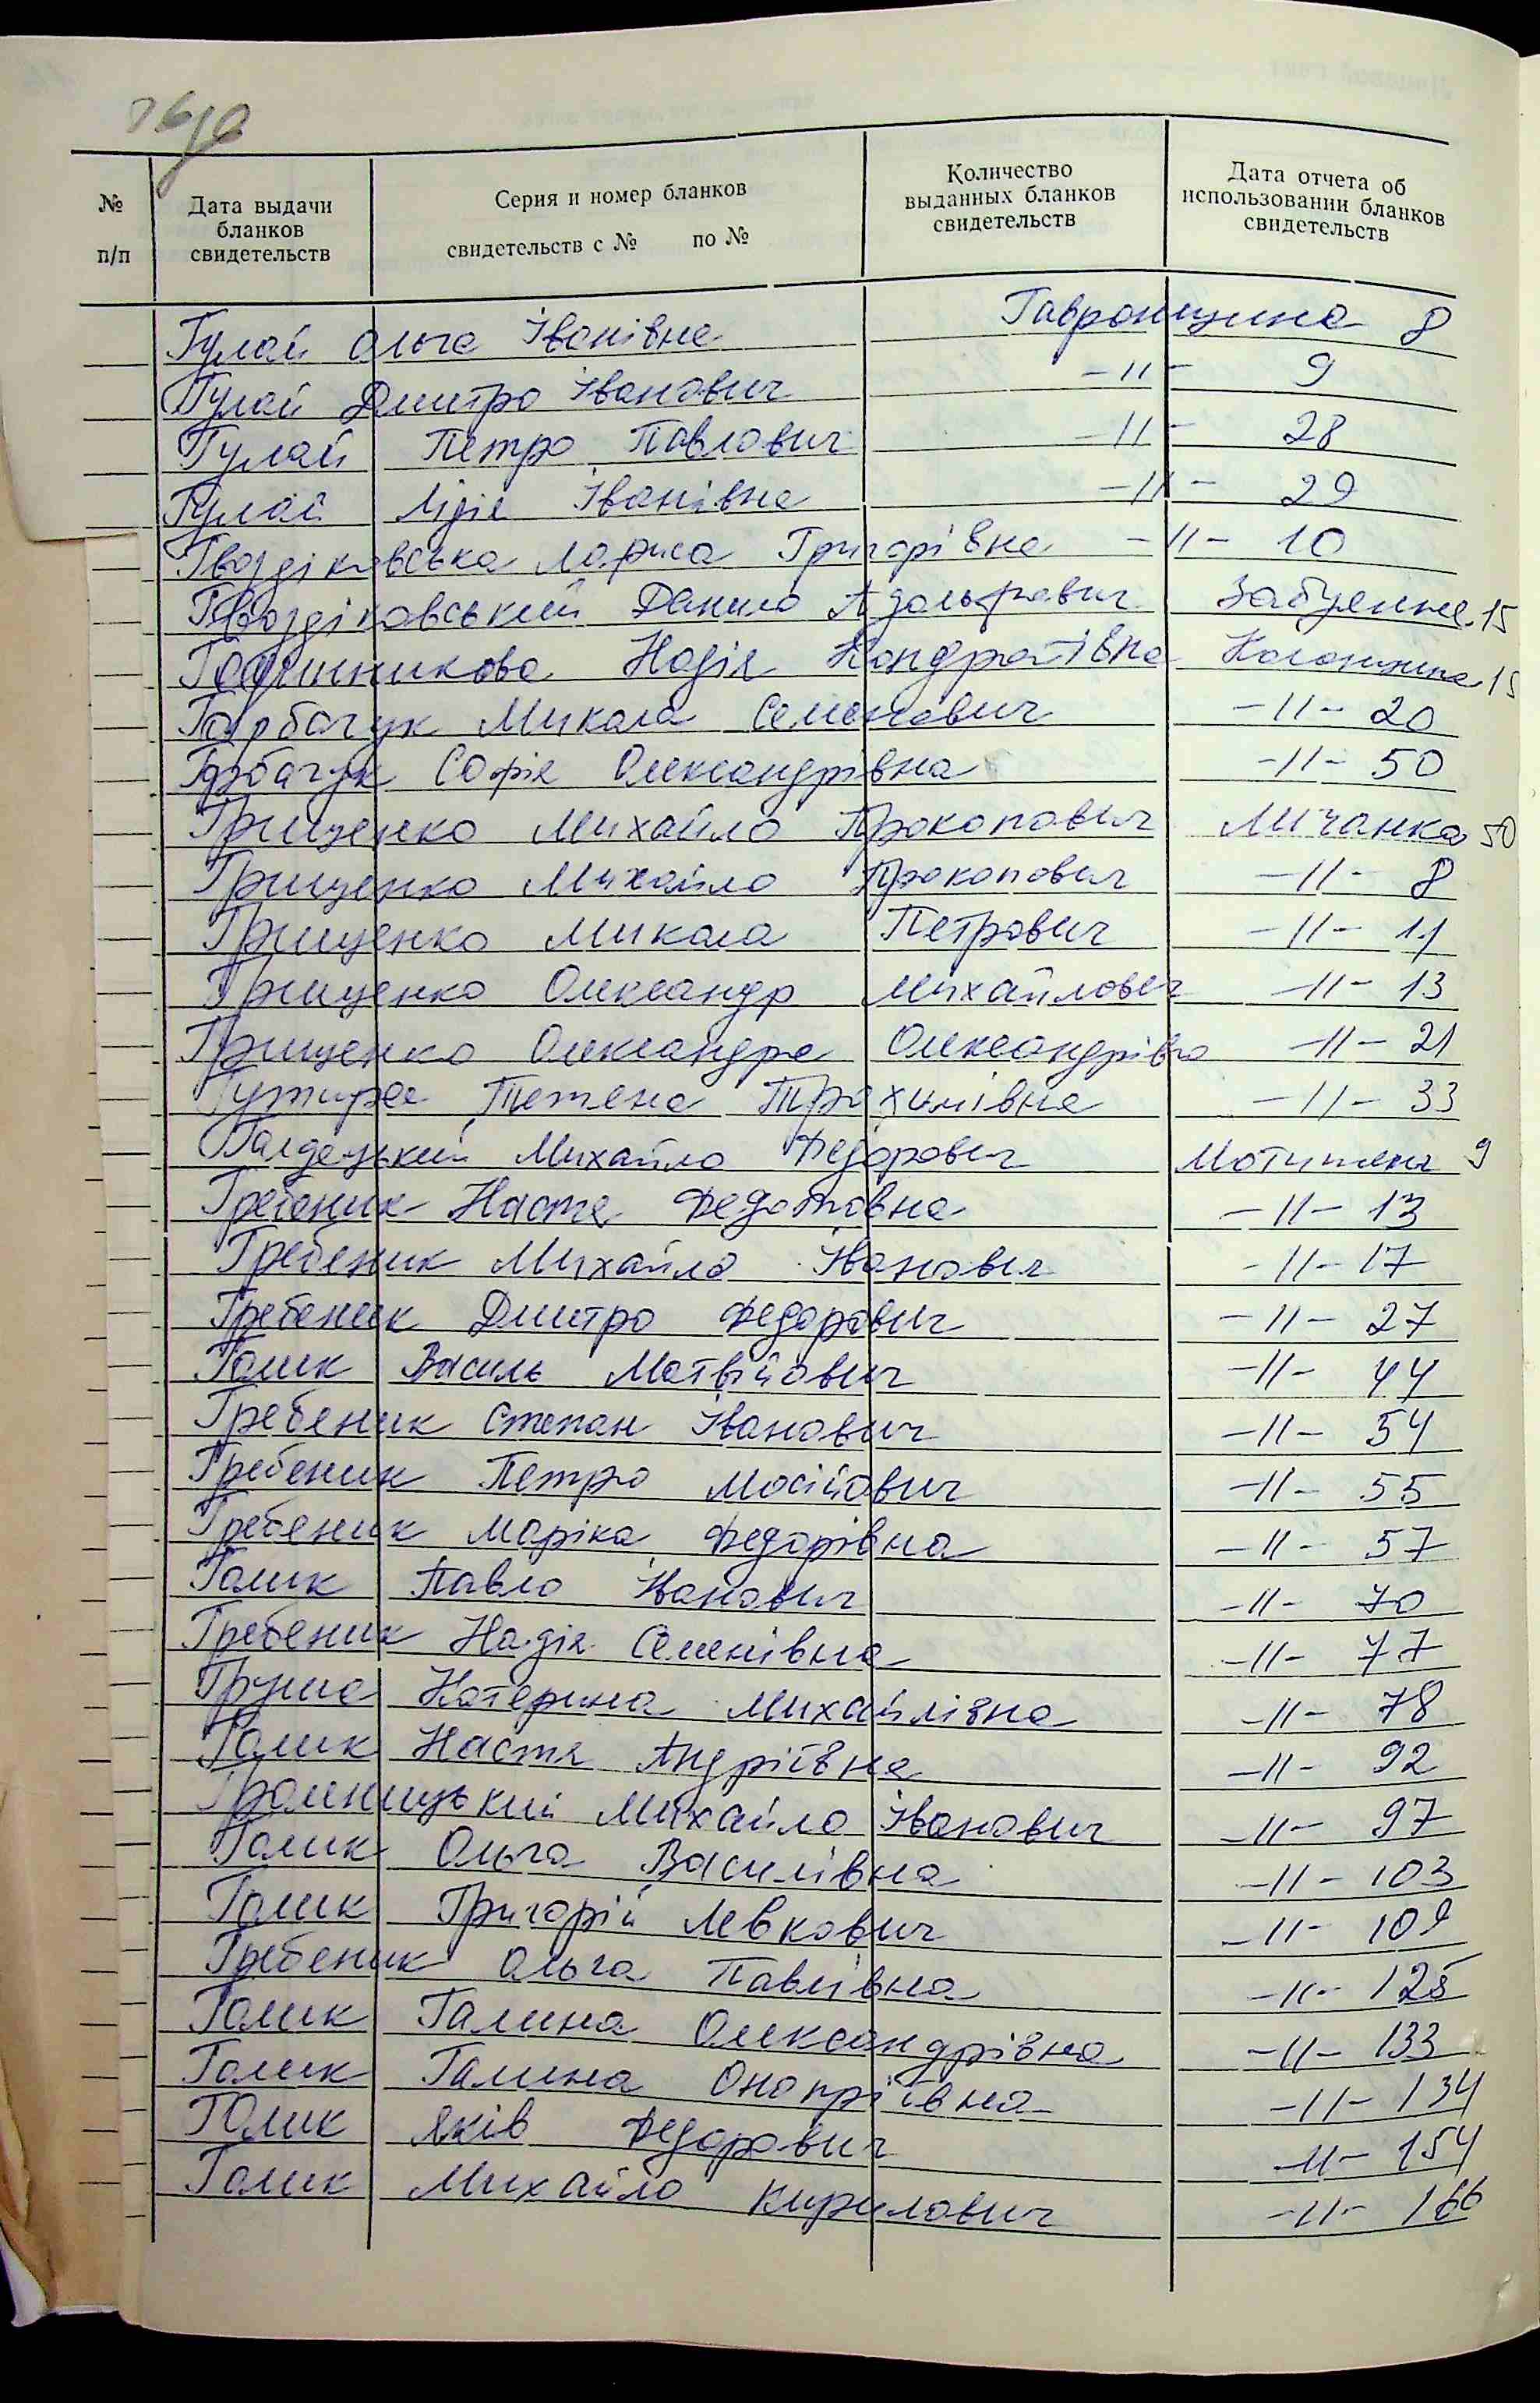 № п/п
Дата выдачи бланков свидетельств
Серия и номер бланков свидетельств с № по №
Количество выданных бланков свидетельств
Дата отчета об использовании бланков свидетельств
Гулай Ольга Іванівна Гавронщина 8
Гулай Дмитро Іванович -//- 9
Гулай Петро Павлович -//- 28
Гулай Лідія Іванівна -//- 29
Гвоздіковська Лариса Григорівна -//- 10
Гвоздіковський Данило Адольфович Забуяння 15
Надія Кондратівна Колонщина 15
Горбачук Микола Семенович -//- 20
Горбачук Софія Олександрівна -//- 50
Грищенко Михайло Прокопович Личанка 50
Грищенко Михайло Прокопович -//- 8
Грищенко Микола Петрович -//- 11
Грищенко Олександр Михайлович -//- 13
Грищенко Олександра Олександрівна -//- 21
Гутира Тетяна Трохимівна -//- 33
Михайло Федорович Мотижин 9
Гребеник Настя Федотовна -//- 13
Гребеник Михайло Іванович -//- 17
Гребеник Дмитро Федорович -//- 27
Голик Василь Матвійович -//- 44
Гребеник Степан Іванович -//- 54
Гребеник Петро Мосійович -//- 55
Гребеник Маріка Федорівна -//- 57
Голик Павло Іванович -//- 70
Гребеник Надія Семенівна -//- 77
Груша Катерина Михайлівна -//- 78
Голик Настя Андріївна -//- 92
Громницький Михайло Іванович -//- 97
Голик Ольга Василівна -//- 103
Голик Григорій Левкович -//- 109
Гребеник Ольга Павлівна -//- 125
Голик Галина Олександрівна -//- 133
Голик Галина Онопріївна -//- 134
Голик Яків Федорович -//- 154
Голик Михайло Кирилович -//- 166